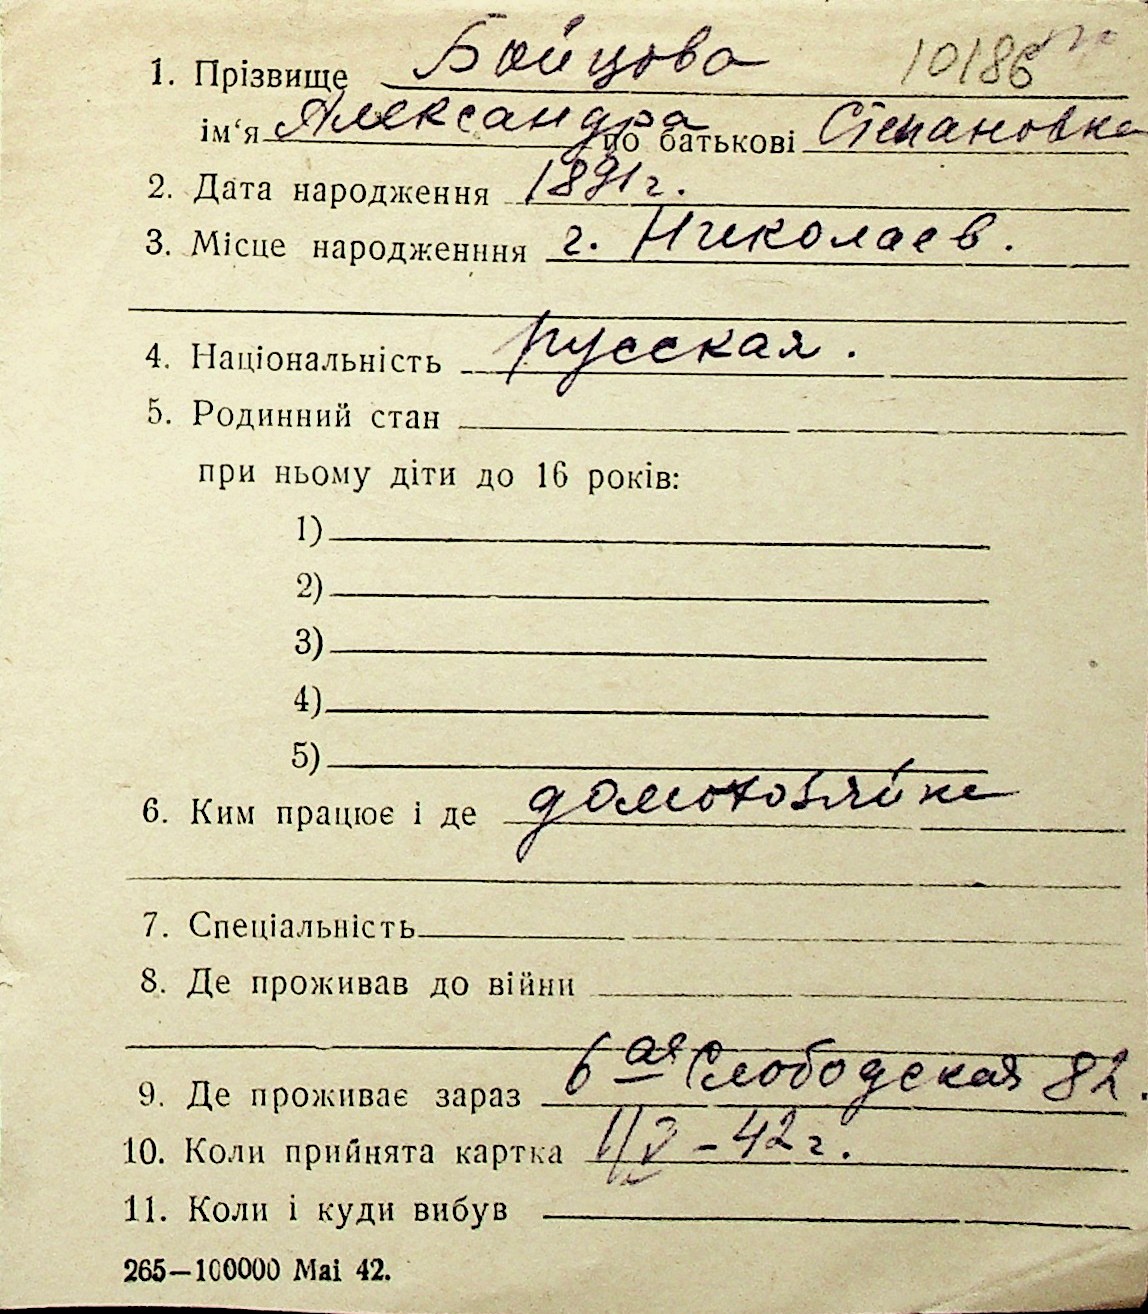 10186
1. Прізвище Бойцова
ім‘я Александра по батькові Степановна
2. Дата народження 1891 г.
3. Місце народженння г. Николаев.
4. Національність русская.
5. Родинний стан
при ньому діти до 16 років:
1)
2)
3)
4)
5)
6. Ким працює і де домохозяйка
7. Спеціальність
8. Де проживав до війни
9. Де проживає зараз 6ая Слободская 82.
10. Коли прийнята картка - 42 г.
11. Коли і куди вибув
265—100000 Mai 42.